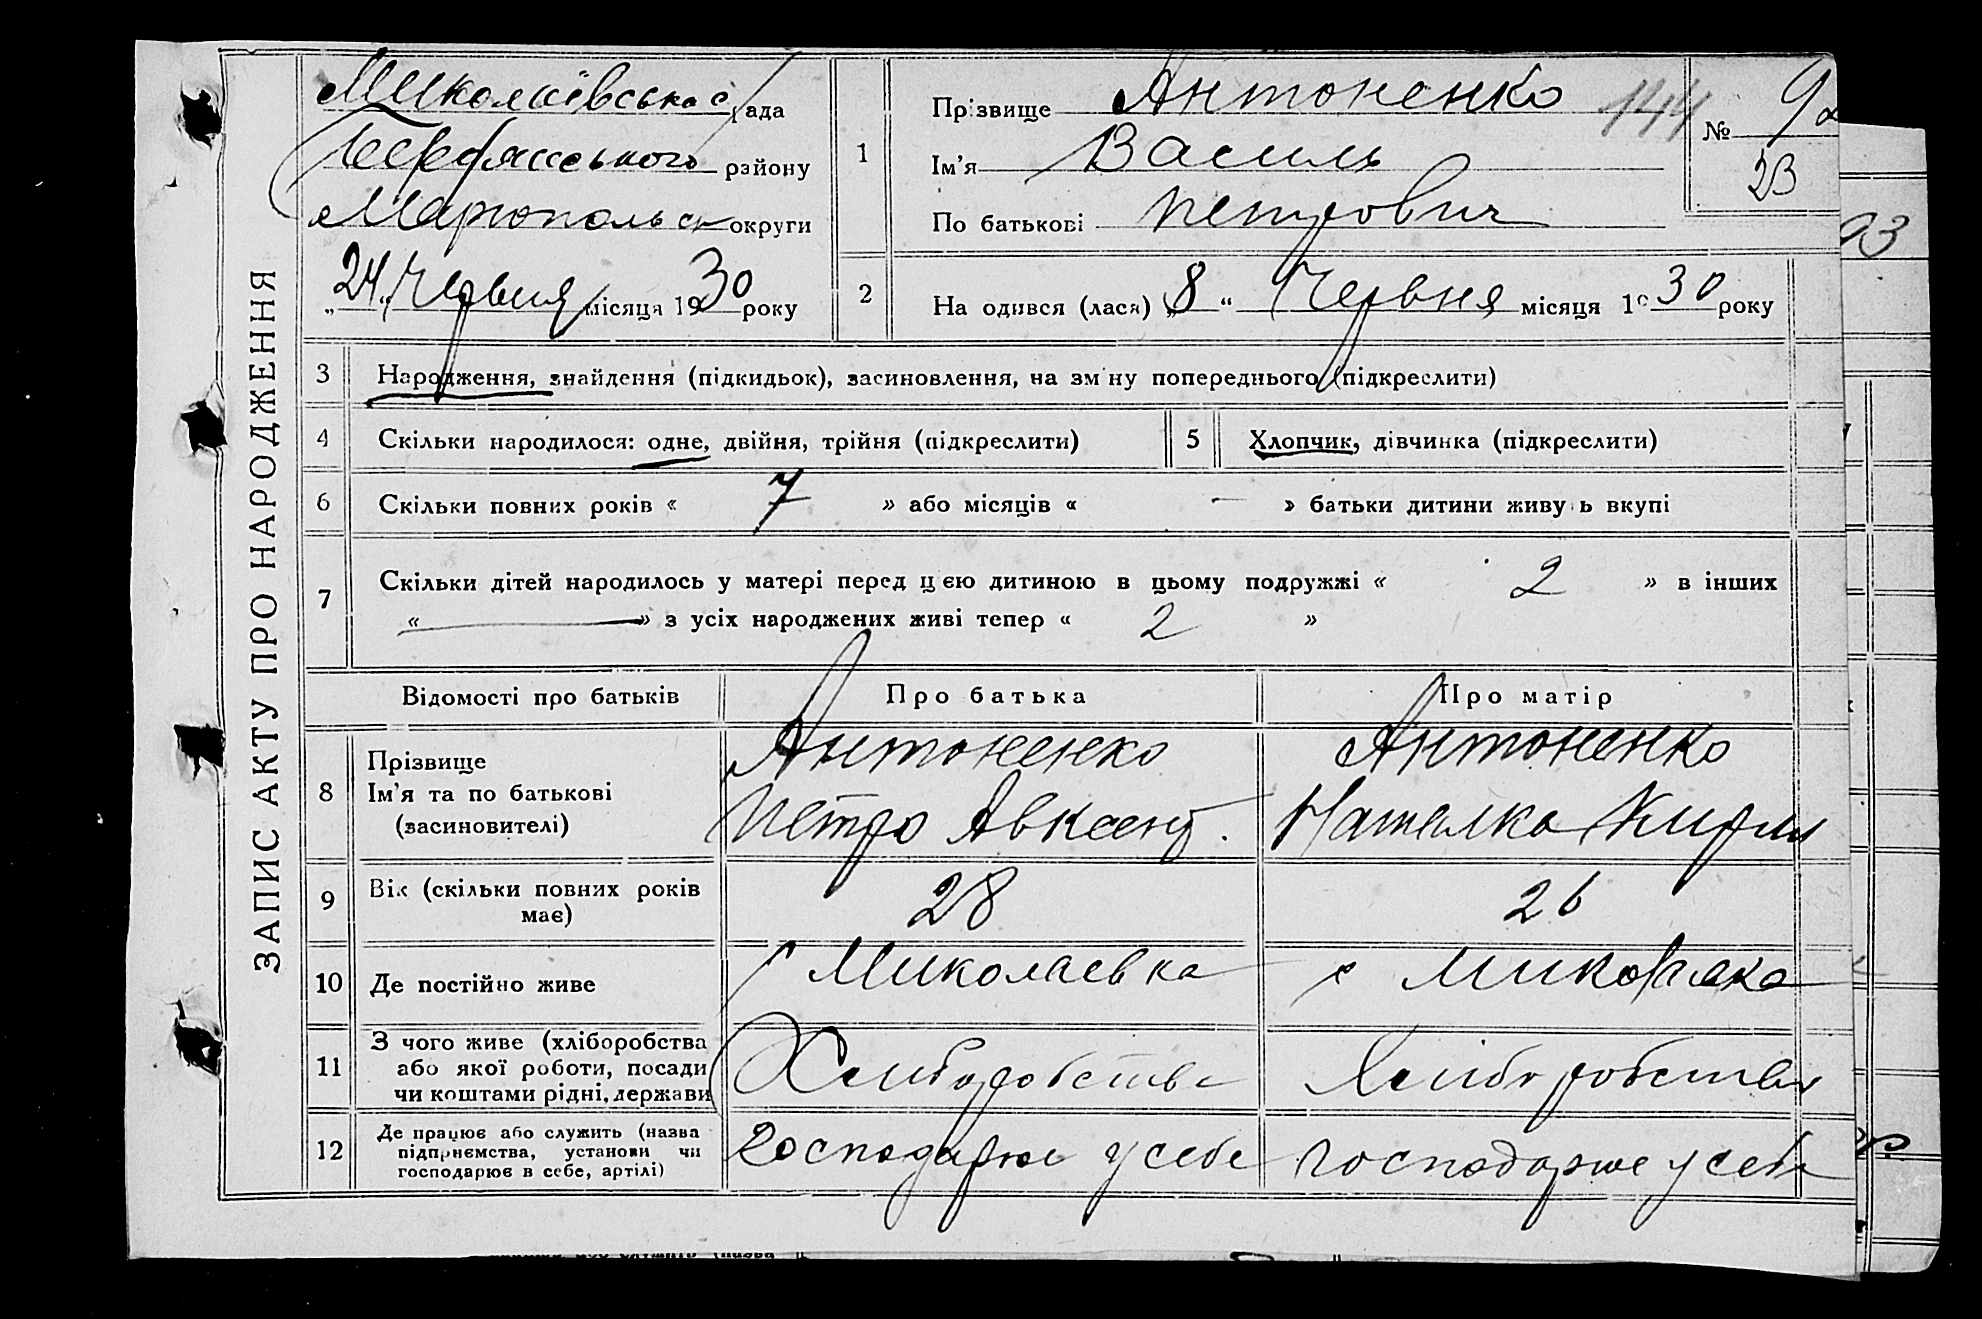 ЗАПИС АКТУ ПРО НАРОДЖЕННЯ
Миколаївська с/рада
Бердянського району
Маріопольськ округи
„24“ Червня місяця 1930 року
1
Прізвище Антоненко
144
Ім'я Василь
По батькові Петрович
№ 92
23
2
На одився (лася) „8“ Червня місяця 1930 року
3
Народження, знайдення (підкидьок), засиновлення, на зміну попереднього (підкреслити)
4
Скільки народилося: одне, двійня, трійня (підкреслити)
5
Хлопчик, дівчинка (підкреслити)
6
Скільки повних років « 7 » або місяців « — » батьки дитини живу ь вкупі
7
Скільки дітей народилось у матері перед цією дитиною в цьому подружжі « 2 » в інших
« — » з усіх народжених живі тепер « 2 »
Відомості про батьків
Про батька
Про матір
8
Прізвище
Ім'я та по батькові
(засиновителі)
Антоненко
Петро Авксент.
Антоненко
Наталка Кирил
9
Вік (скільки повних років
має)
28
26
10
Де постійно живе
с Миколаевка
с
11
З чого живе (хліборобства
або якої роботи, посади
чи коштами рідні, держави
Хлиборобства
Хлиборобства
12
Де працює або служить (назва
підприємства, установи чи
господарює в себе, артілі)
господарює у себе
господарює у себе
93